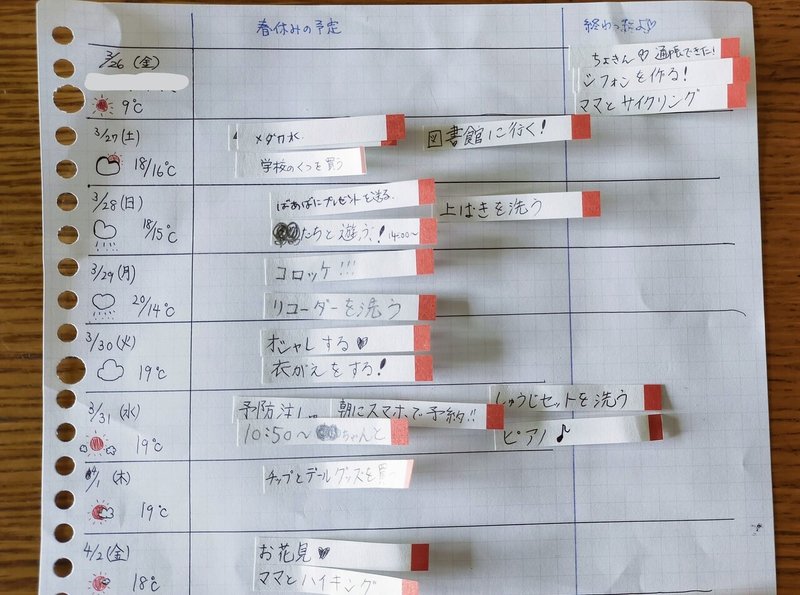 春休みの予定
終わったよ♡
3/26 (金)
9℃
ちょきん 通帳できた!
シフォンを作る!
ママとサイクリング
3/27 (土)
18/16℃
メダカ水
図書館に行く!
学校のくつを買う
3/28 (日)
18/15℃
ばあばにプレゼントを送る
上ばきを洗う
たちと遊ぶ! 14:00~
3/29 (月)
20/14℃
コロッケ!!!
リコーダーを洗う
3/30 (火)
19℃
オシャレする♥
衣がえをする!
3/31 (水)
19℃
予防注
朝にスマホで予約!!
しゅうじセットを洗う
10:50~ ちゃんと
ピアノ♪
4/1 (木)
19℃
チップとデールグッズを買う
4/2 (金)
18℃
お花見♥
ママとハイキング